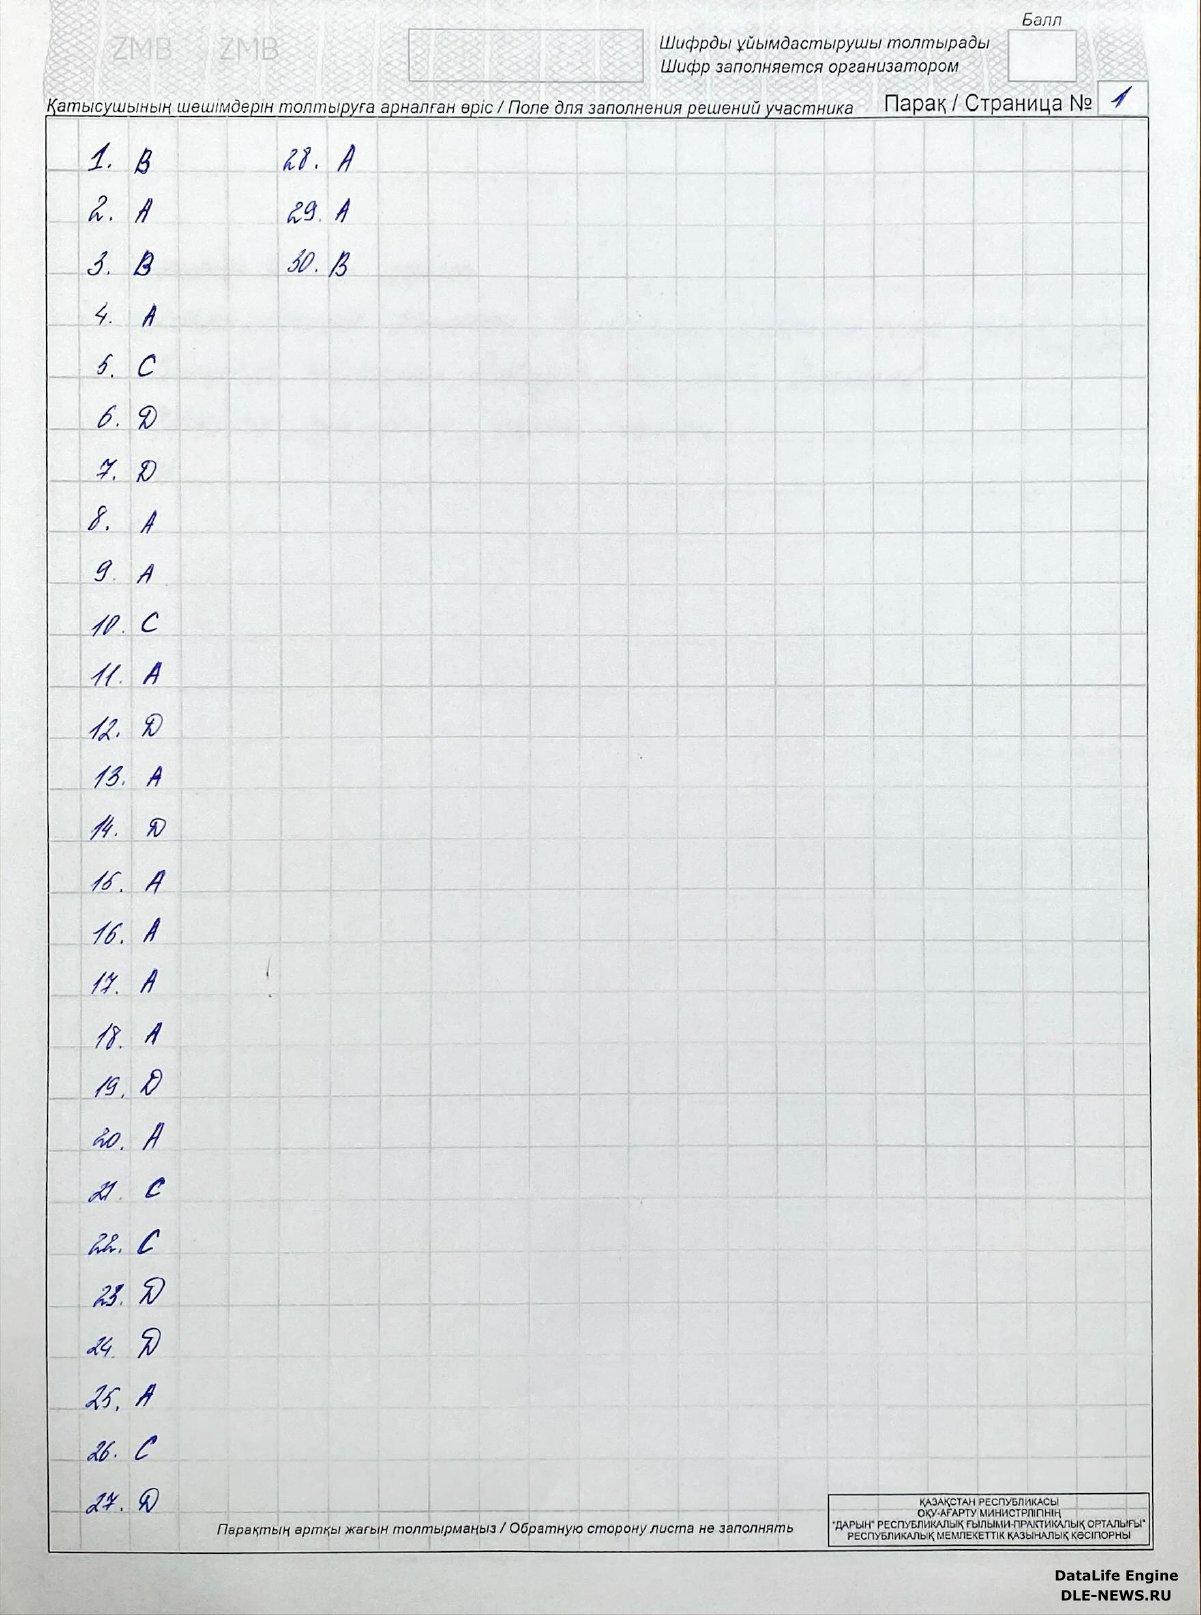 ZMB ZMB
Балл
Шифрды ұйымдастырушы толтырады
Шифр заполняется организатором
Қатысушының шешімдерін толтыруға арналған өріс / Поле для заполнения решений участника
Парақ / Страница № 1
1. B
2. A
3. B
4. A
5. C
6. D
7. D
8. A
9. A
10. C
11. A
12. D
13. A
14. D
15. A
16. A
17. A
18. A
19. D
20. A
21. C
22. C
23. D
24. D
25. A
26. C
27. D
28. A
29. A
30. B
Парақтың артқы жағын толтырмаңыз / Обратную сторону листа не заполнять
ҚАЗАҚСТАН РЕСПУБЛИКАСЫ
ОҚУ-АҒАРТУ МИНИСТРЛІГІНІҢ
"ДАРЫН" РЕСПУБЛИКАЛЫҚ ҒЫЛЫМИ-ПРАКТИКАЛЫҚ ОРТАЛЫҒЫ"
РЕСПУБЛИКАЛЫҚ МЕМЛЕКЕТТІК ҚАЗЫНАЛЫҚ КӘСІПОРНЫ
DataLife Engine
DLE-NEWS.RU